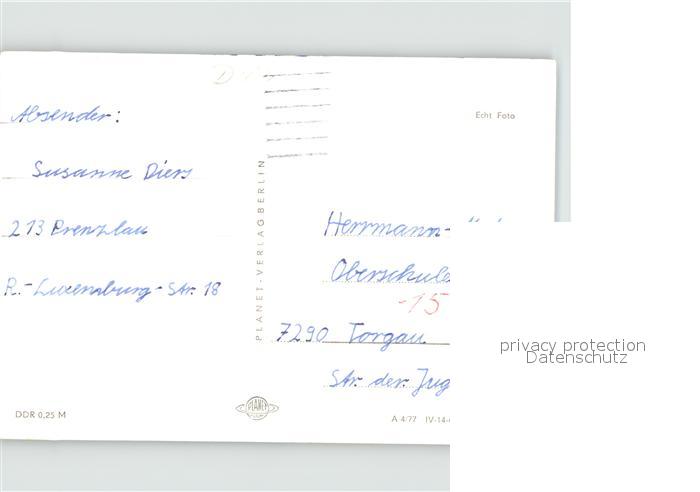 Absender:
Susanne Diers
213 Prenzlau
R.-Luxemburg-Str. 18
DDR 0,25 M
PLANET-VERLAG BERLIN
PLANET
Echt Foto
Herrmann-
Oberschule
-15
7290 Torgau
Str. der Jug
A 4/77 IV-14-
privacy protection
Datenschutz